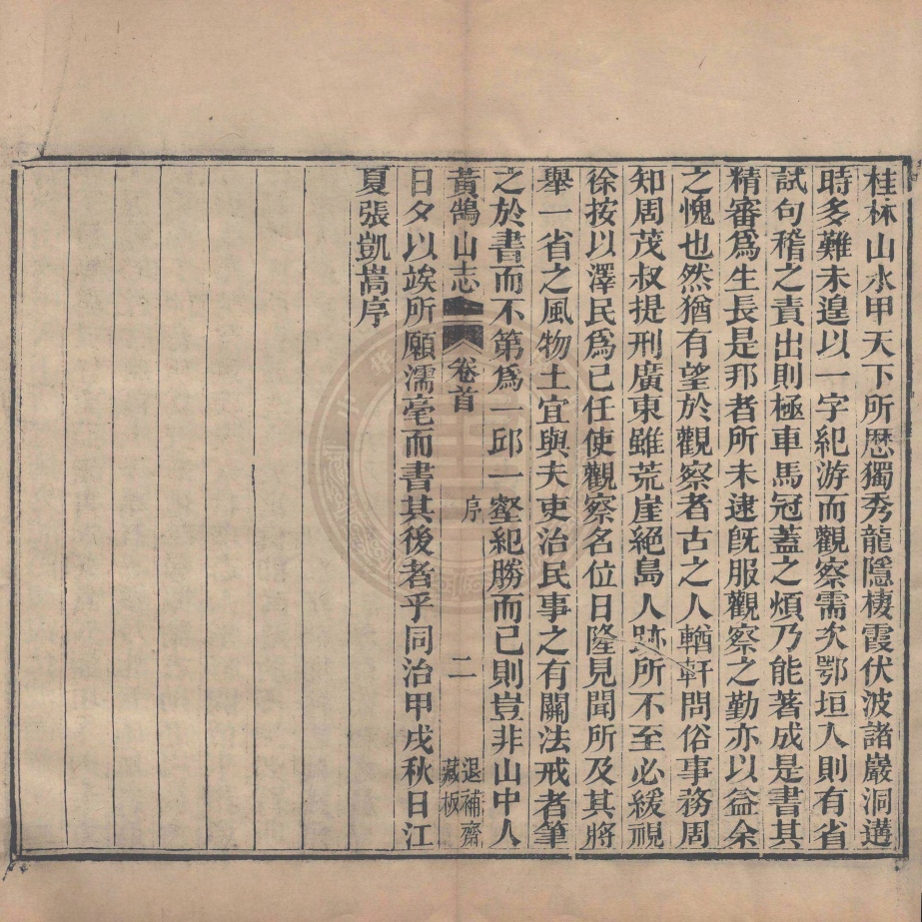 桂林山水甲天下所歴獨秀龍隱棲霞伏波諸巖洞遘
時多難未遑以一字紀游而觀察需次鄂垣入則有省
試句稽之責出則極車馬冠蓋之煩乃能著成是書其
精審爲生長是邦者所未逮旣服觀察之勤亦以益余
之愧也然猶有望於觀察者古之人輶軒問俗事務周
知周茂叔提刑廣東雖荒崖絕島人跡所不至必緩視
徐按以澤民爲己任使觀察名位日隆見聞所及其將
舉一省之風物土宜與夫吏治民事之有關法戒者筆
之於書而不第爲一邱一壑紀勝而已則豈非山中人
黃鵠山志 卷首 序 二 退補齋藏板
日夕以竢所願濡毫而書其後者乎同治甲戌秋日江
夏張凱嵩序